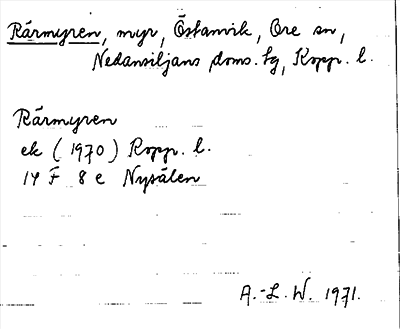 Rärmyren, myr, Östanvik, Ore sn,
Nedansiljans doms. tg, Kopp. l.
Rärmyren
ek (1970) Kopp. l.
14 F 8 e Nysälen
A.-L. W. 1971.